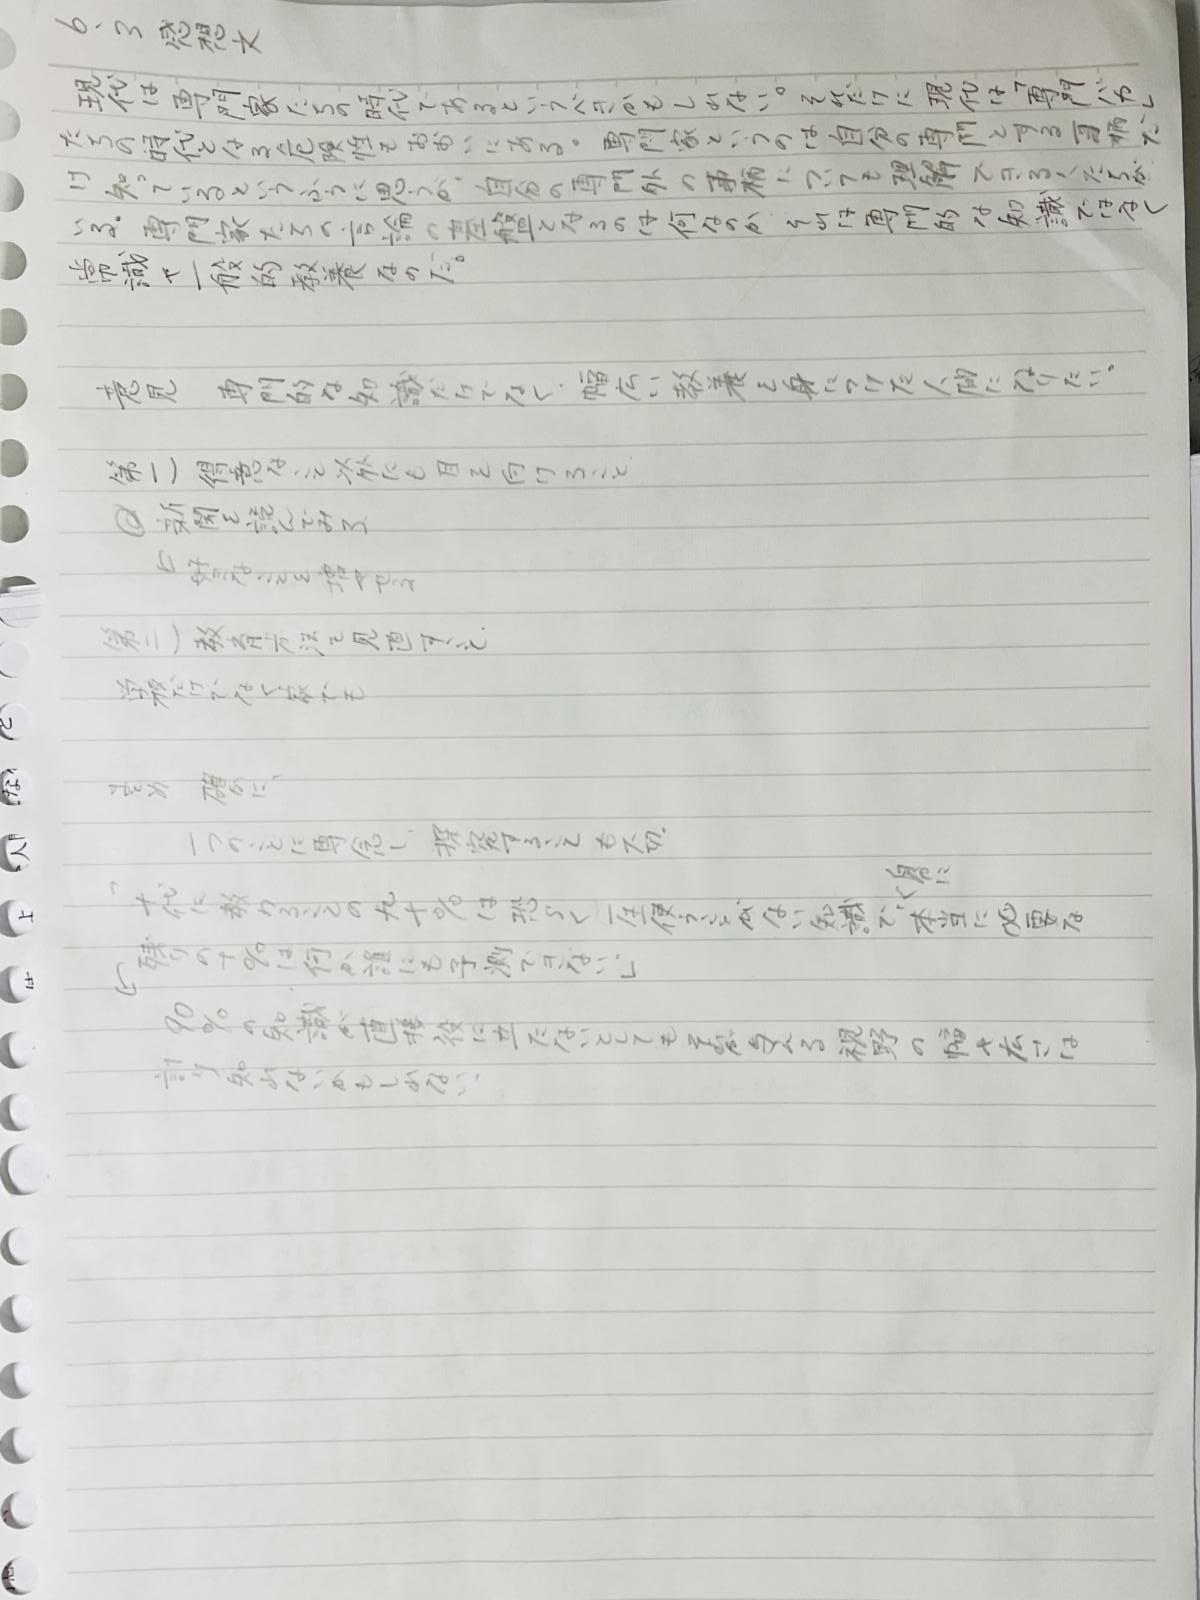 6.3 感想文
現代は専門家たちの時代であるというべきかもしれない。それだけに現代は「専門バカ」
たちの時代となる危険性もおおいにある。専門家というのは自分の専門とする事柄だ
け知っているというふうに思うが、自分の専門外の事柄についても理解できる人たちが
いる。専門家たちの言論の基盤となるのは何なのか、それは専門的な知識ではなく
常識や一般的教養なのだ。
意見 専門的な知識だけでなく、幅広い教養を身につけた人間になりたい。
第一 得意なこと以外にも目を向けること
@ 新聞を読んでみる
好きなことを増やせる
第二 教育方法を見直すこと
学校だけでなく家でも
まとめ 確かに、
一つのことに専念し、探究することも大切
自分に
「十代に教わることの九十%は恐らく一生使うことがない知識で本当に必要な
残りの十%は何か誰にも予測できない」
90%の知識が直接役に立たないとしても それが与える視野の幅や広さは
計り知れないかもしれない、